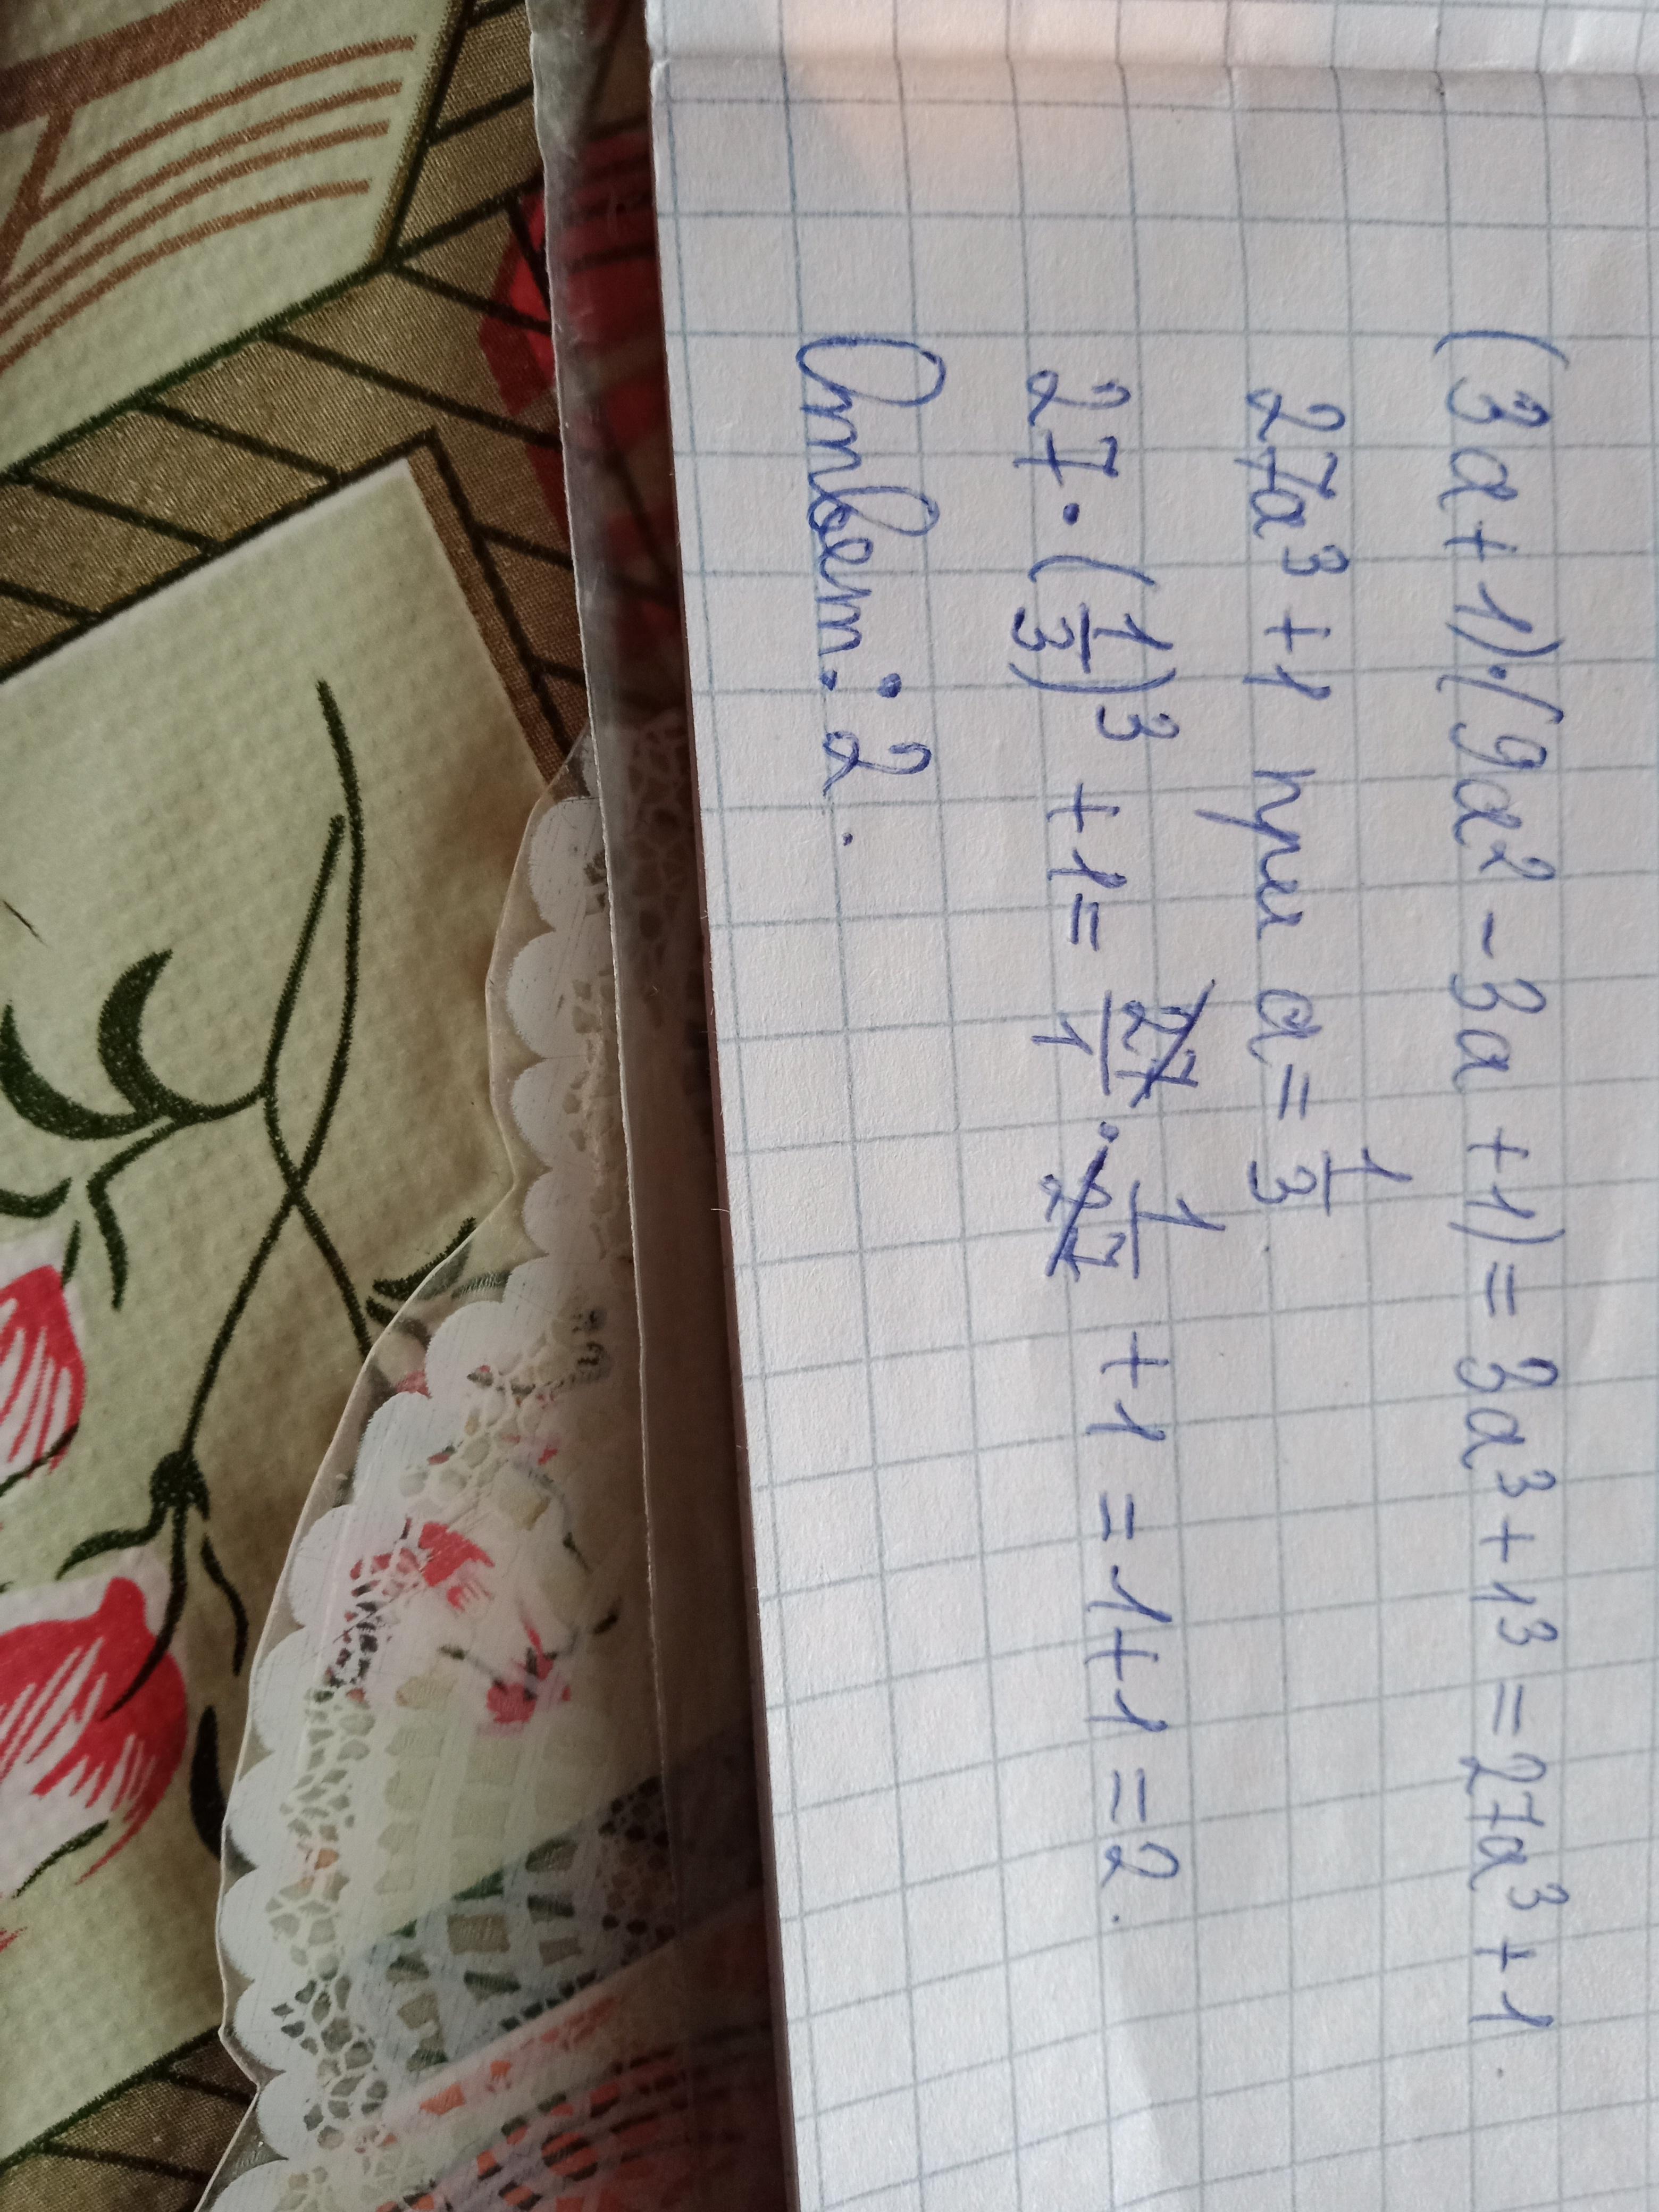 (3a+1)·(9a² - 3a + 1) = 3a³ + 1³ = 27a³ + 1.
27a³ + 1 при a = 1/3
27 · (1/3)³ + 1 = 27/1 · 1/27 + 1 = 1 + 1 = 2.
Ответ: 2.